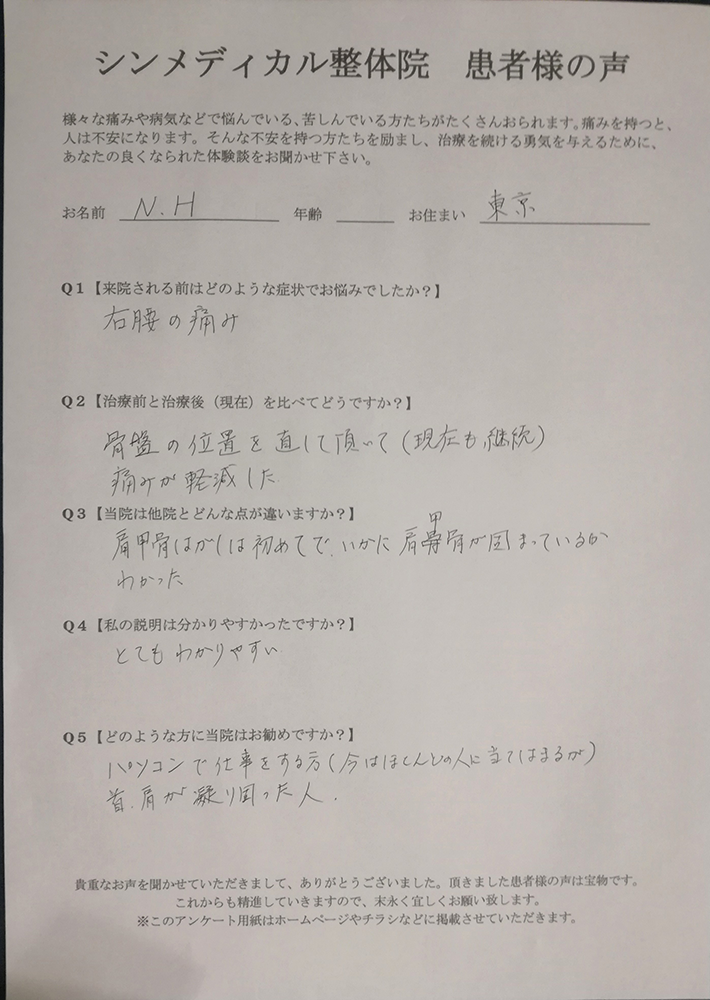 シンメディカル整体院　患者様の声
様々な痛みや病気などで悩んでいる、苦しんでいる方たちがたくさんおられます。痛みを持つと、
人は不安になります。そんな不安を持つ方たちを励まし、治療を続ける勇気を与えるために、
あなたの良くなられた体験談をお聞かせ下さい。
お名前 N.H 年齢 お住まい 東京
Q1【来院される前はどのような症状でお悩みでしたか？】
右腰の痛み
Q2【治療前と治療後（現在）を比べてどうですか？】
骨盤の位置を直して頂いて(現在も継続)
痛みが軽減した
Q3【当院は他院とどんな点が違いますか？】
肩甲骨はがしは初めてで、いかに肩甲骨が固まっているか
わかった
Q4【私の説明は分かりやすかったですか？】
とてもわかりやすい
Q5【どのような方に当院はお勧めですか？】
パソコンで仕事をする方(今はほとんどの人に当てはまるが)
首、肩が凝り固った人.
貴重なお声を聞かせていただきまして、ありがとうございました。頂きました患者様の声は宝物です。
これからも精進していきますので、末永く宜しくお願い致します。
※このアンケート用紙はホームページやチラシなどに掲載させていただきます。